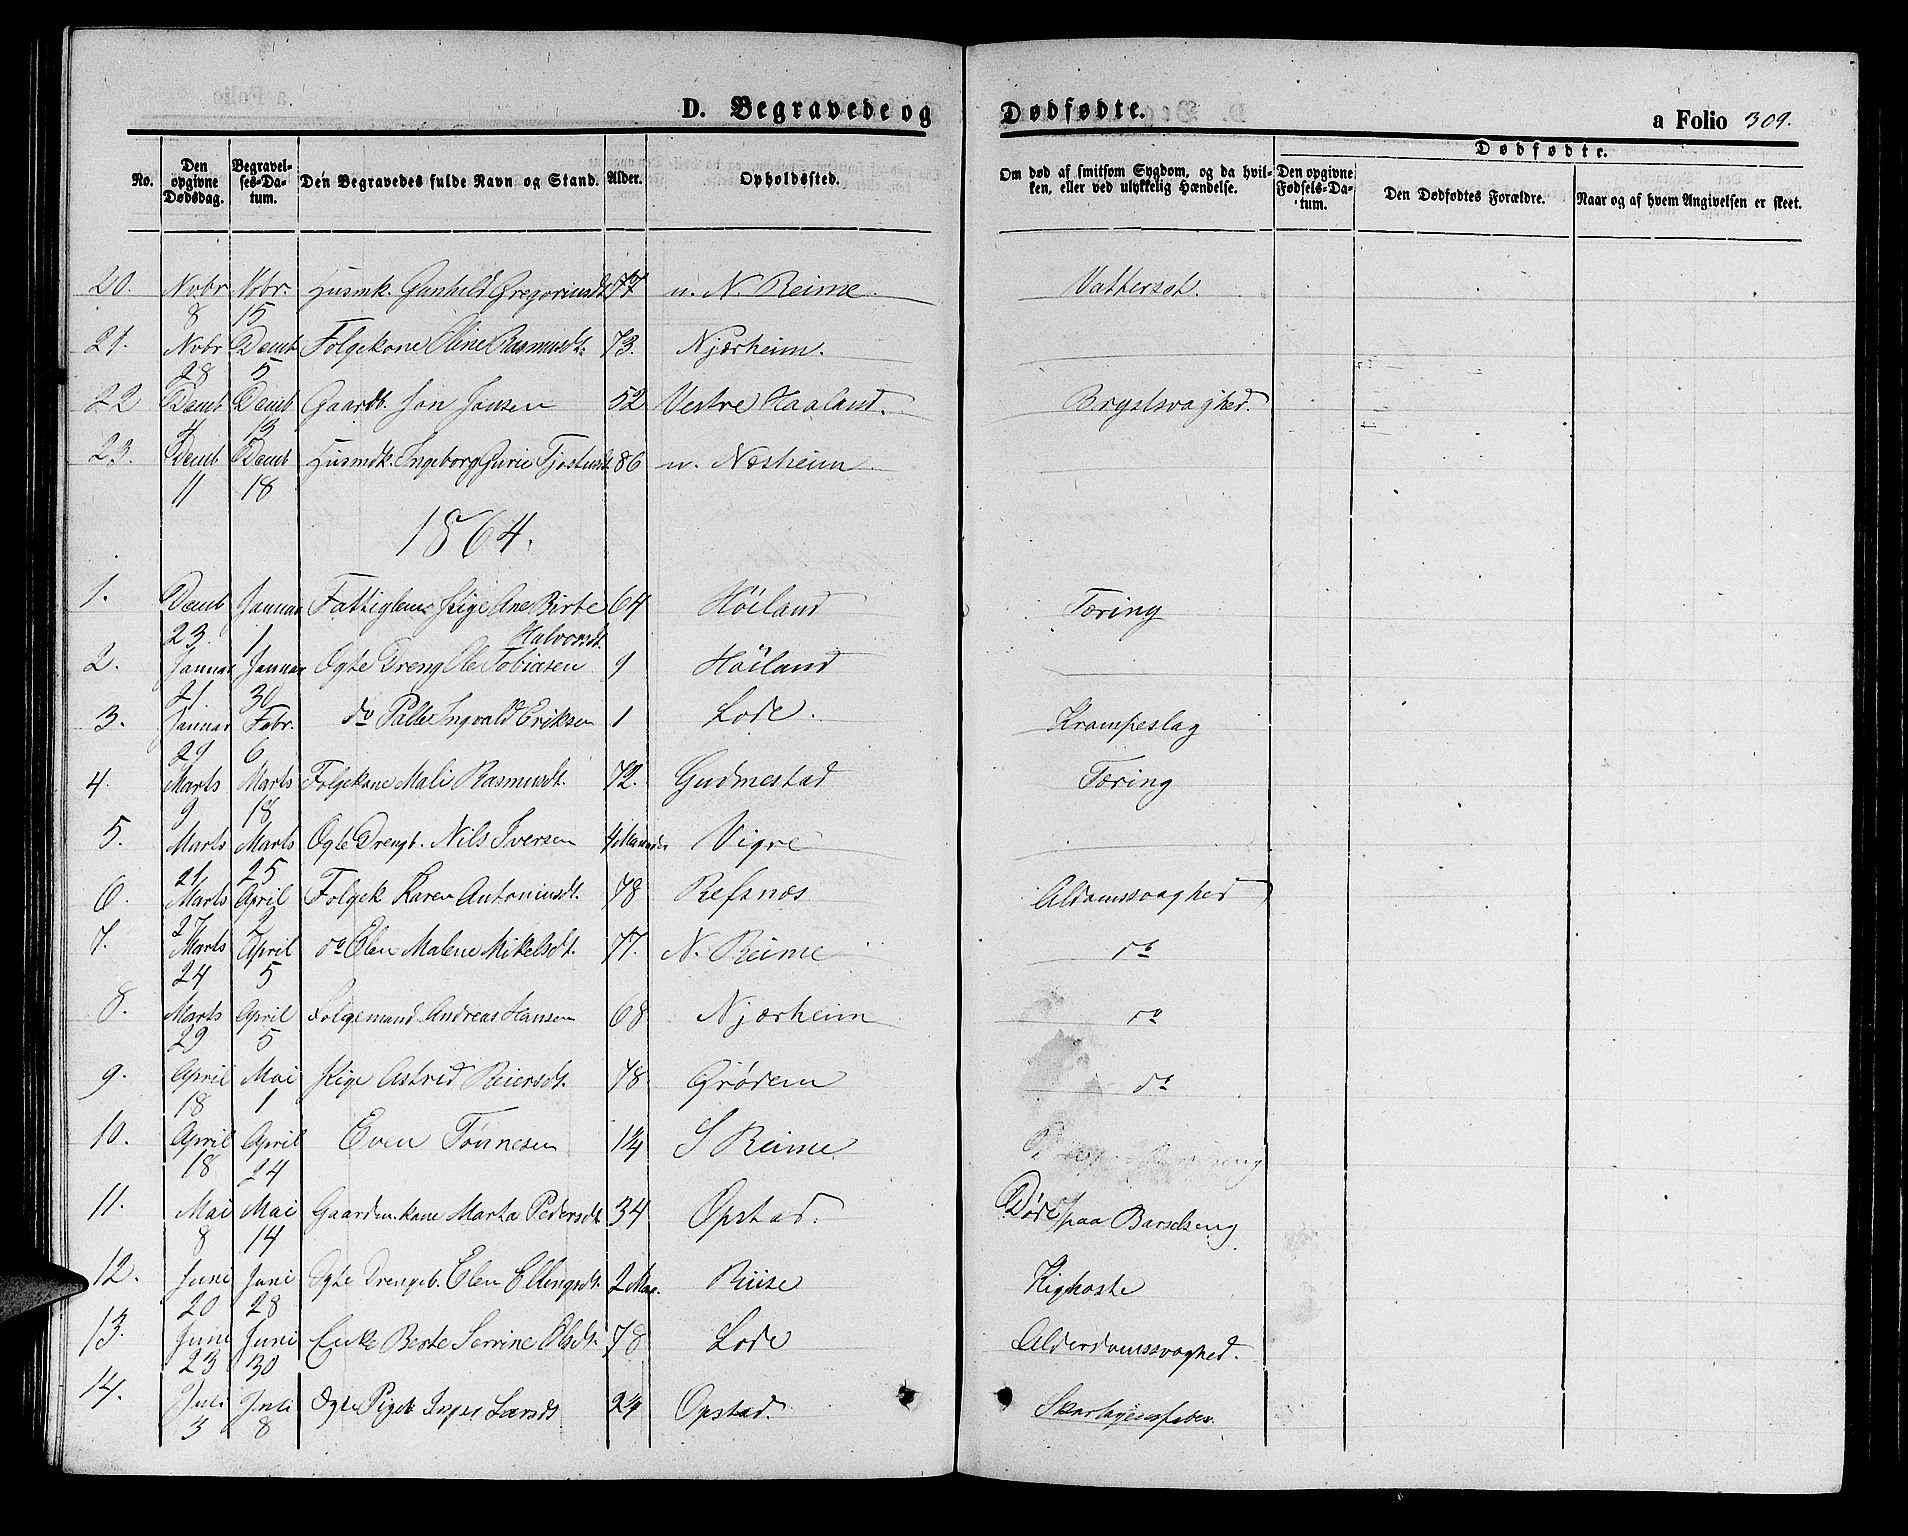 D. Begravede og Dødfødte.
a Folio 309.
No.
Den opgivne Dødsdag.
Begravelses-Datum.
Den Begravedes fulde Navn og Stand.
Alder.
Opholdssted.
Om død af smitsom Sygdom, og da hvilken, eller ved ulykkelig Hændelse.
Dødfødte.
Den opgivne Fødsels-Datum.
Den Dødfødtes Forældre.
Naar og af hvem Angivelsen er skeet.
20. Novbr 8 Nvbr. 15 Husmk. Gunhild Gregoriusdt 77 u. N. Reime Vattersot.
21. Novbr 28 Decmb 5 Folgekone Oline Rasmusdt. 73. Njærheim.
22 Decmb 4 Decmb 13 Gaardb. Jon Jonsen 52 Vestre Haaland. Brystsvaghed.
23. Decmb 11 Decmb 18 Husmdk. Ingeborg Gurie Tjostensdt 86 u. Næsheim
1864.
1. Decmb 23. Januar 1 Fattiglem Pige Ane Birte Halvorsdt. 64 Höiland Tæring
2. Januar 21 Januar 30 Ægte Dreng Ole Tobiasen 9 Höiland
3. Januar 29 Febr. 6 do Palle Ingvald Eriksen 1 Lode. Krampeslag
4. Marts 9 Marts 18 Folgekone Mali Rasmusdt. 72. Gudmestad Tæring
5. Marts 21 Marts 25 Ægte Drengb. Nils Iversen 4 Maaneder Vigre
6. Marts 27 April 2 Folgek Karen Antoniusdt. 78 Refsnæs Aldomssvaghed
7. Marts 24 April 5 do Elen Malene Mikelsdt. 77. N. Reime do
8. Marts 29 April 5 Folgemand Andreas Hansen 68 Njærheim do
9. April 18 Mai 1 Pige Astrid Reiersdt. 78 Grödem do
10. April 18 April 24 Even Tönnesen 14 S Reime
11. Mai 8 Mai 14 Gaardm.kone Marta Pedersdt 34 Opstad. Døde paa Barselseng
12. Juni 20 Juni 28 Ægte Drengeb. Elen Ellingsdt. 2 Maa. Riise Kighoste
13. Juni 23 Juni 30 Enke Berte Serrine Olsdt. 78 Lode Alderdomssvaghed.
14. Juli 3 Juli 8 Ægte Pigeb Inger Larsdt 24 Opstad. Skarlagensfeber.